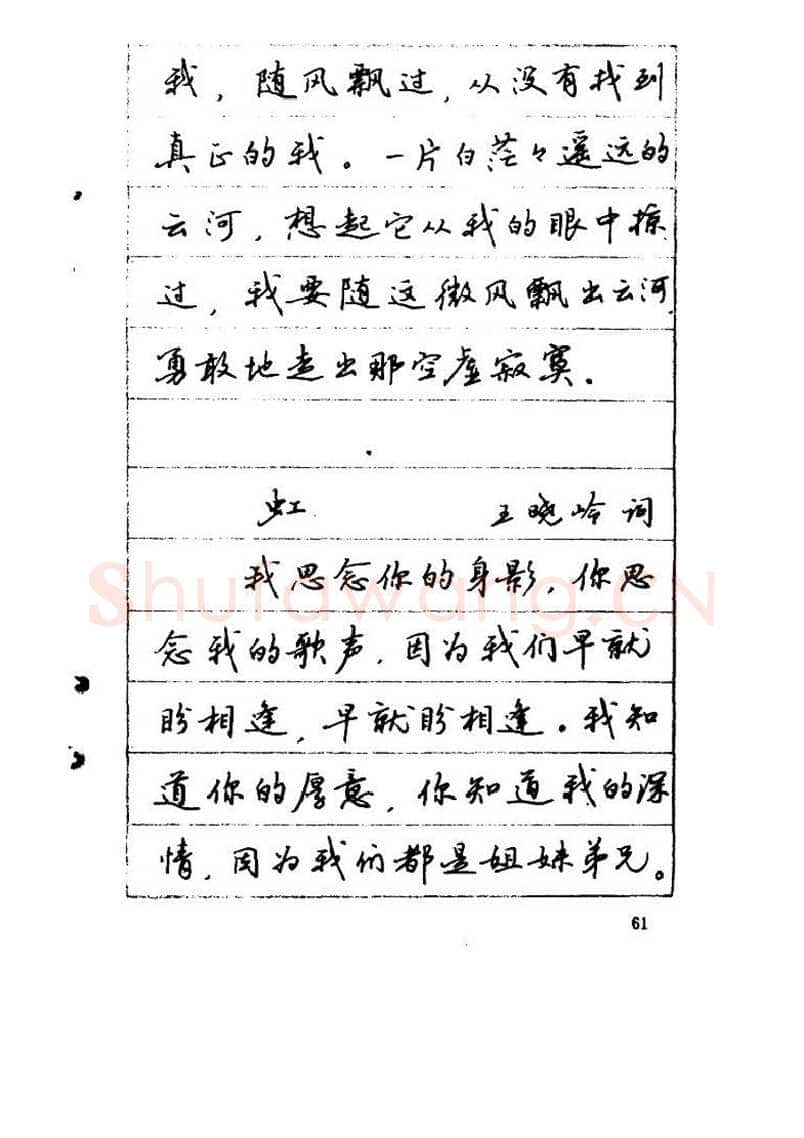 我，随风飘过，从没有找到
真正的我。一片白茫々遥远的
云河，想起它从我的眼中掠
过，我要随这微风飘出云河
勇敢地走出那空虚寂寞．
虹 王晓岭词
我思念你的身影，你思
念我的歌声，因为我们早就
盼相逢，早就盼相逢。我知
道你的厚意，你知道我的深
情，因为我们都是姐妹弟兄。
61
Shufawang.CN